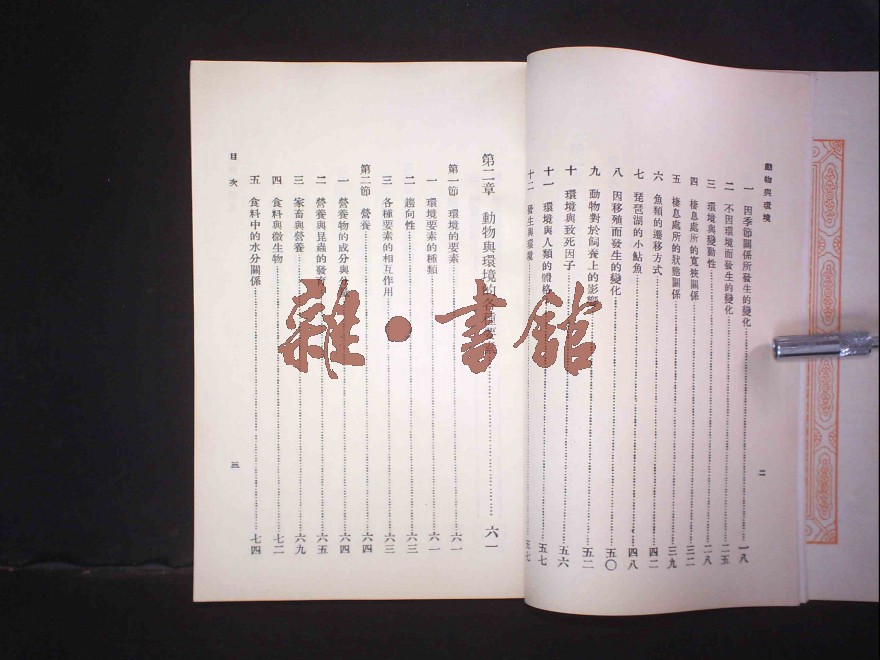 動物與環境
一　因季節關係所發生的變化……一八
二　不因環境而發生的變化……二五
三　環境與變動性……二八
四　棲息處所的寬狹關係……三二
五　棲息處所的狀態關係……三九
六　魚類的遷移方式……四二
七　琵琶湖的小鮎魚……四八
八　因移殖而發生的變化……五〇
九　動物對於飼養上的影響……五二
十　環境與致死因子……五六
十一　環境與人類的體格……五七
十二　發生與環境……五七
二
第二章　動物與環境的各種要……六一
第一節　環境的要素……六一
一　環境要素的種類……六一
二　趨向性……六三
三　各種要素的相互作用……六三
第二節　營養……六四
一　營養物的成分與……六四
二　營養與昆蟲的發育……六五
三　家畜與營養……六九
四　食料與微生物……七二
五　食料中的水分關係……七四
目次
三
雜·書館